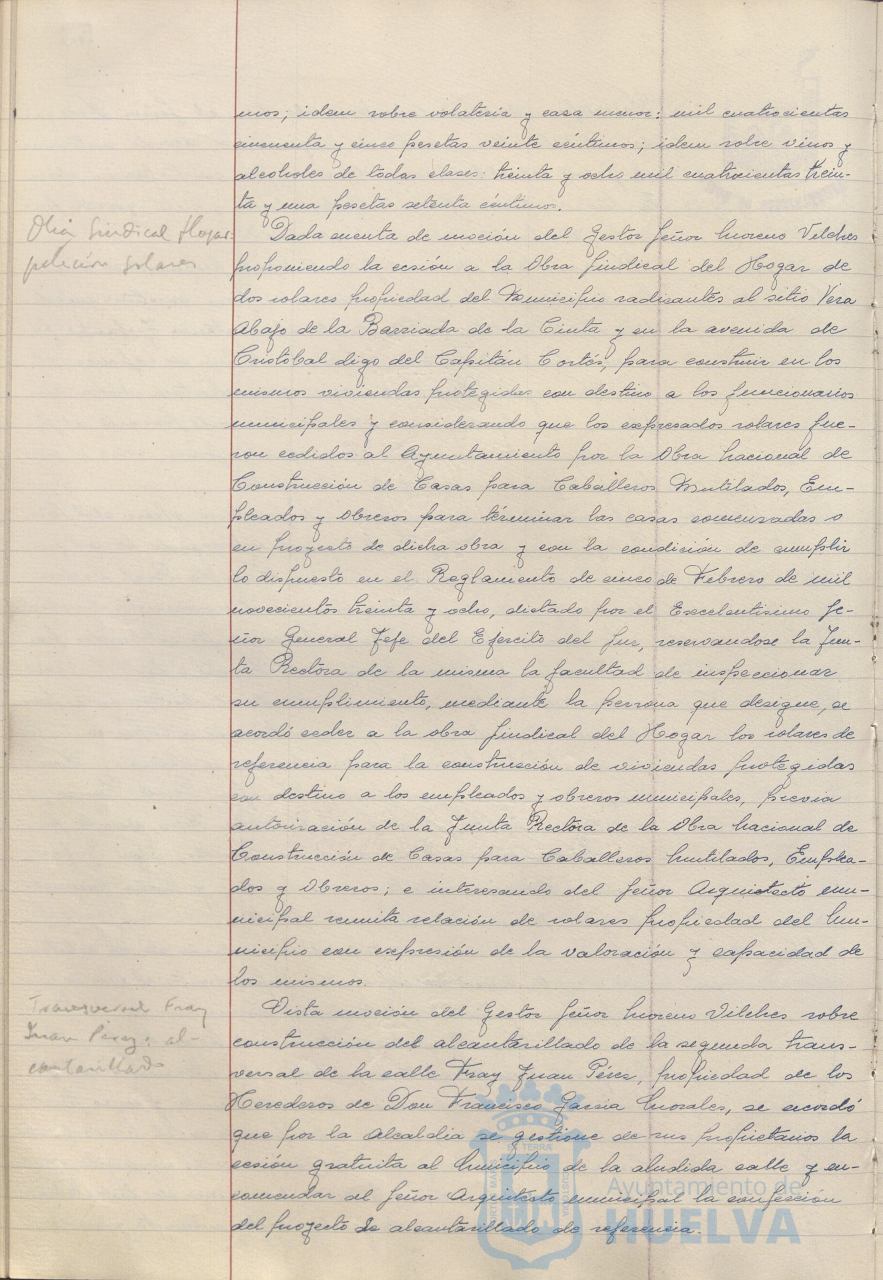 mos; idem sobre volatería y casa menor: mil cuatrocientas
cincuenta y cinco pesetas veinte céntimos; idem sobre vinos y
alcoholes de todas clases: treinta y ocho mil cuatrocientas trein-
ta y una pesetas setenta céntimos.
Obra Sindical Hogar:
petición solares
Dada cuenta de moción del Gestor Señor Moreno Vilches
proponiendo la cesión a la Obra Sindical del Hogar de
dos solares propiedad del Municipio radicantes al sitio Vera
Abajo de la Barriada de la Cinta y en la avenida de
Cristóbal digo del Capitán Cortés, para construir en los
mismos viviendas protegidas con destino a los funcionarios
municipales y considerando que los expresados solares fue-
ron cedidos al Ayuntamiento por la Obra Nacional de
Construcción de Casas para Caballeros Mutilados, Em-
pleados y Obreros para términar las casas comenzadas o
en proyecto de dicha obra y con la condición de cumplir
lo dispuesto en el Reglamento de cinco de Febrero de mil
novecientos treinta y ocho, dictado por el Excelentísimo Se-
ñor General Jefe del Ejército del Sur, reservandose la Jun-
ta Rectora de la misma la facultad de inspeccionar
su cumplimiento, mediante la persona que designe, se
acordó ceder a la obra Sindical del Hogar los solares de
referencia para la construcción de viviendas protegidas
con destino a los empleados y obreros municipales, previa
autorización de la Junta Rectora de la Obra Nacional de
Construcción de Casas para Caballeros Mutilados, Emplea-
dos y Obreros; e interesando del Señor Arquitecto mu-
nicipal remita relación de solares propiedad del Mu-
nicipio con expresión de la valoración y capacidad de
los mismos.
Transversal Fray
Juan Pérez: al-
cantarillado
Vista moción del Gestor Señor Moreno Vilches sobre
construcción del alcantarillado de la segunda trans-
versal de la calle Fray Juan Pérez, propiedad de los
Herederos de Don Francisco García Morales, se acordó
que por la Alcaldia se gestione de sus propietarios la
cesión gratuita al Municipio de la aludida calle y en-
comendar al Señor Arquitecto municipal la confección
del proyecto de alcantarillado de referencia.
Ayuntamiento de
HUELVA